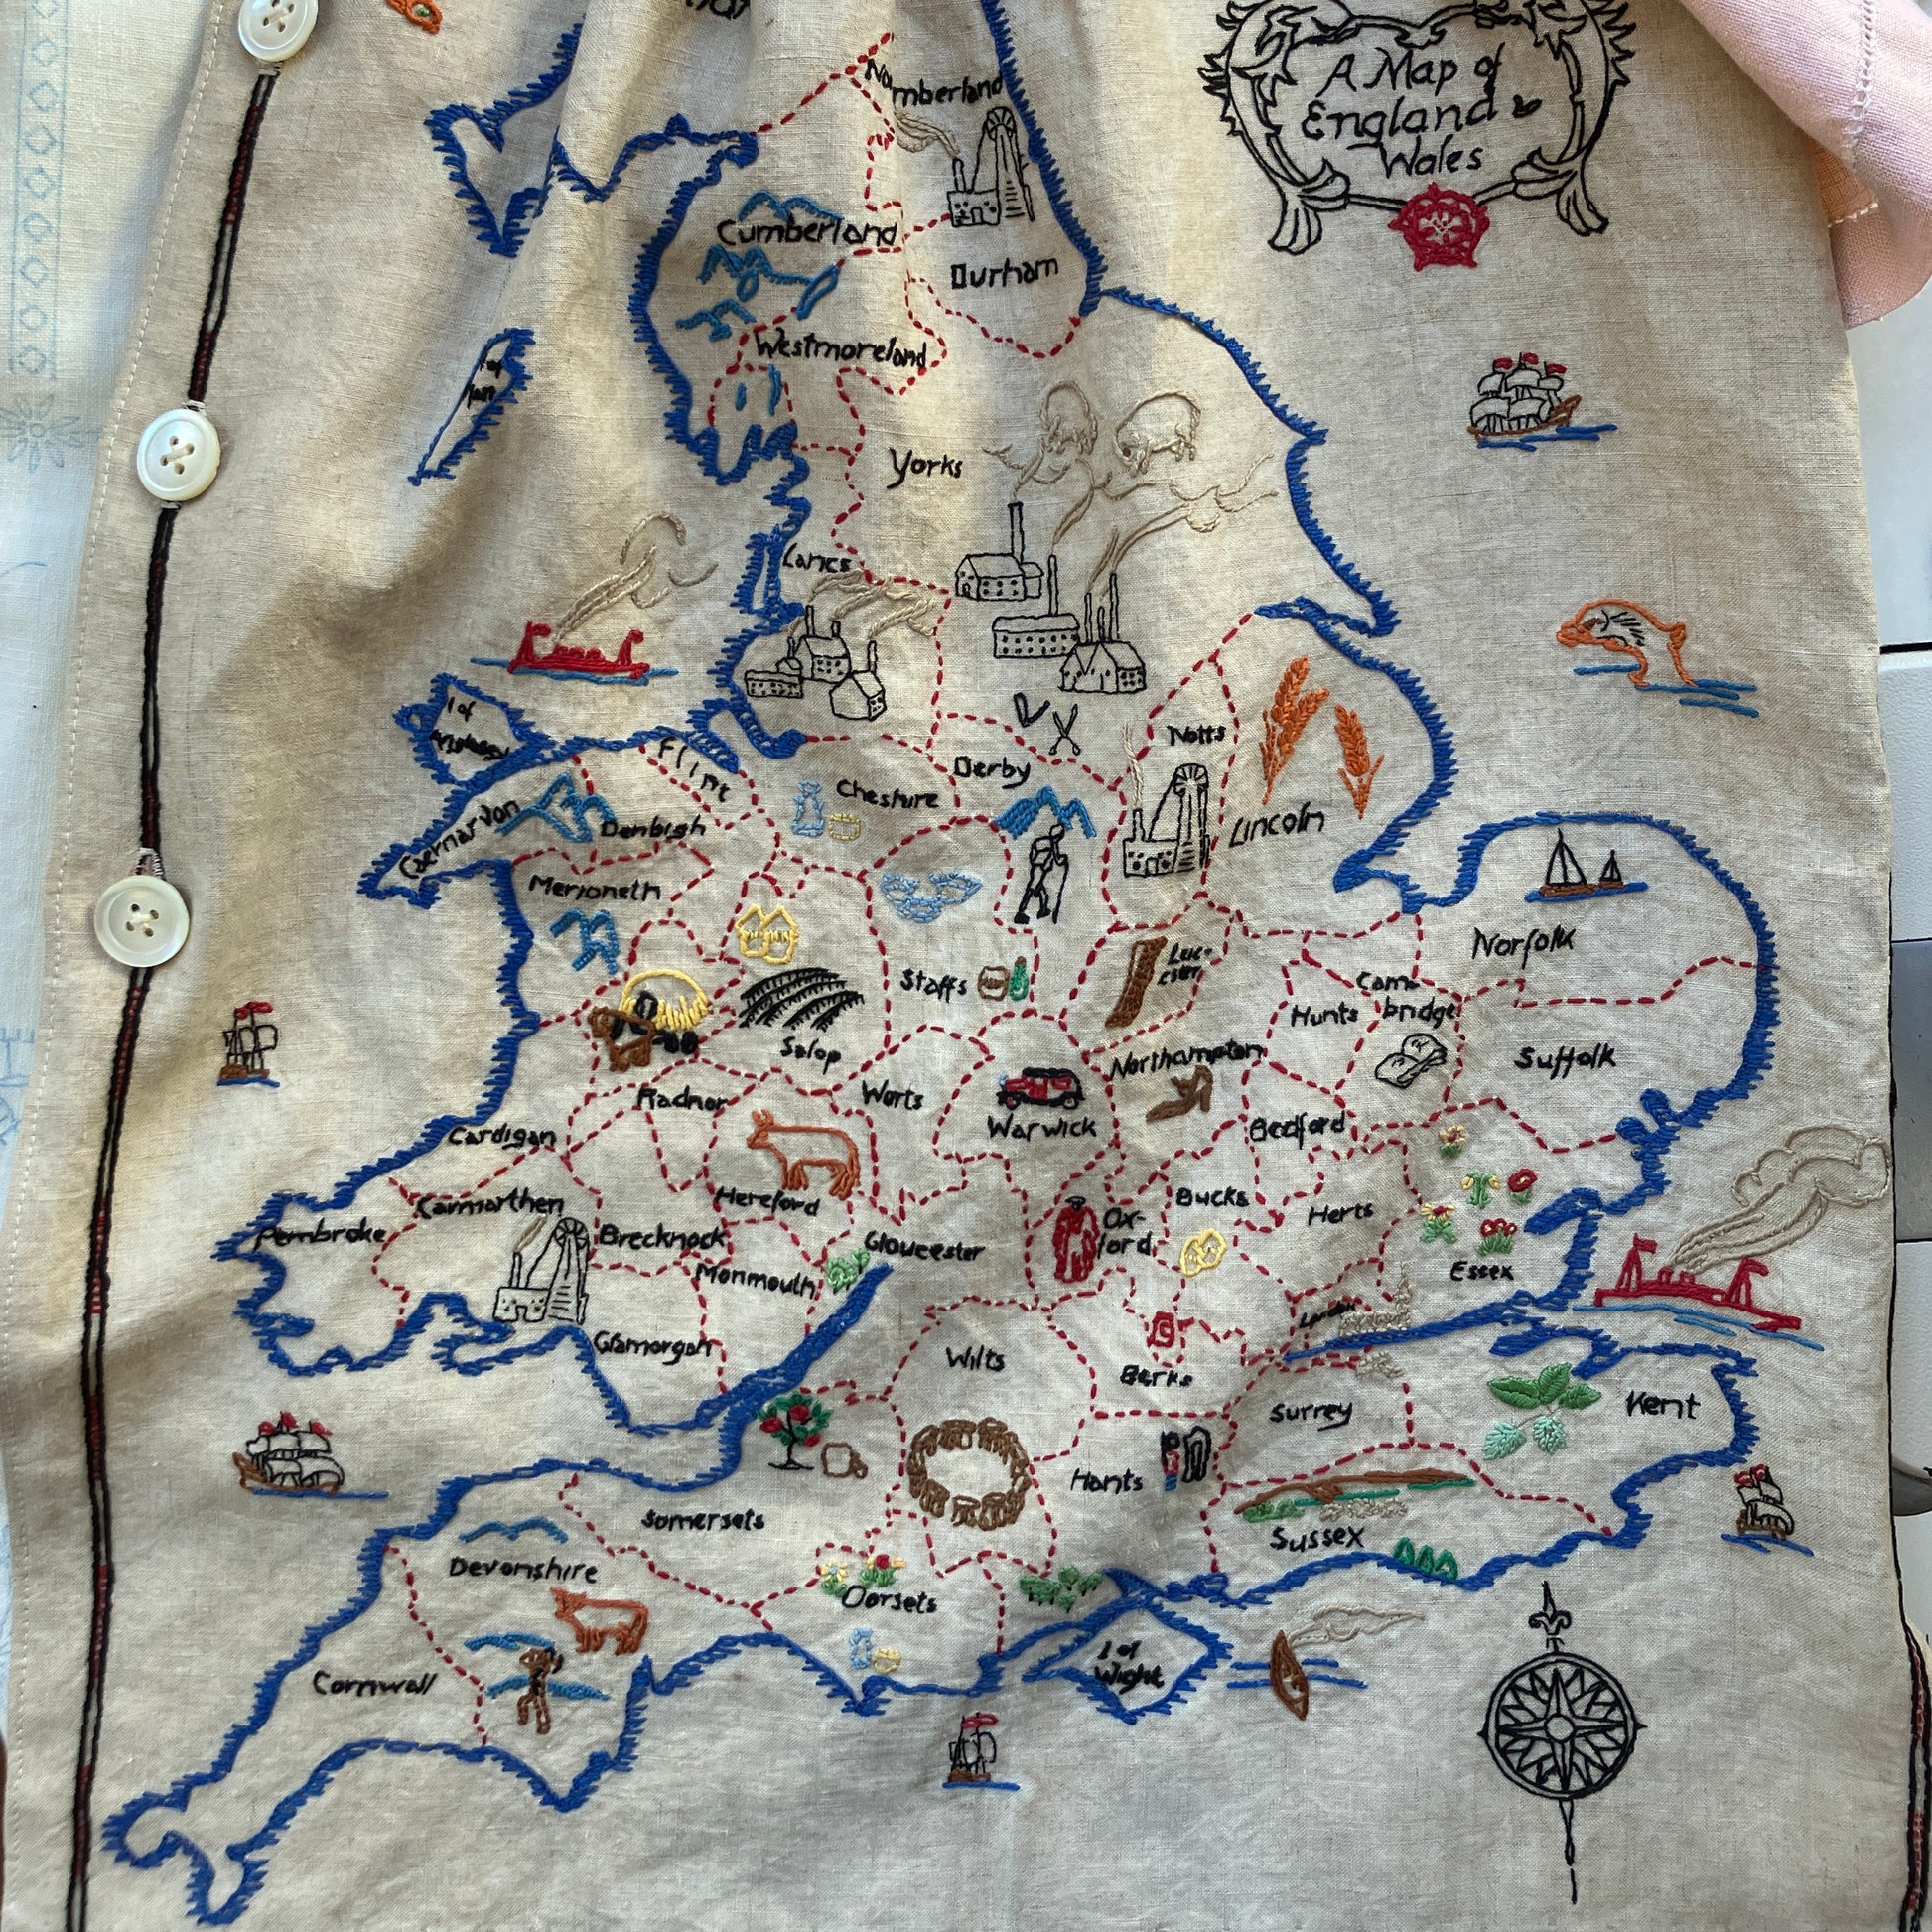 A Map of
England &
Wales
Numberland
Cumberland
Durham
Westmoreland
I of
Man
Yorks
Lancs
I of
Anglesey
Flint
Notts
Derby
Cheshire
Caernarvon
Denbigh
Lincoln
Merioneth
Norfolk
Leic-
ester
Staffs
Cam-
bridge
Hunts
Salop
Suffolk
Northampton
Radnor
Worts
Warwick
Bedford
Cardigan
Carmarthen
Hereford
Bucks
Herts
Pembroke
Brecknock
Gloucester
Ox-
ford
Monmouth
Essex
London
Glamorgan
Wilts
Berks
Surrey
Kent
Hants
Somersets
Sussex
Devonshire
Dorsets
I of
Wight
Cornwall